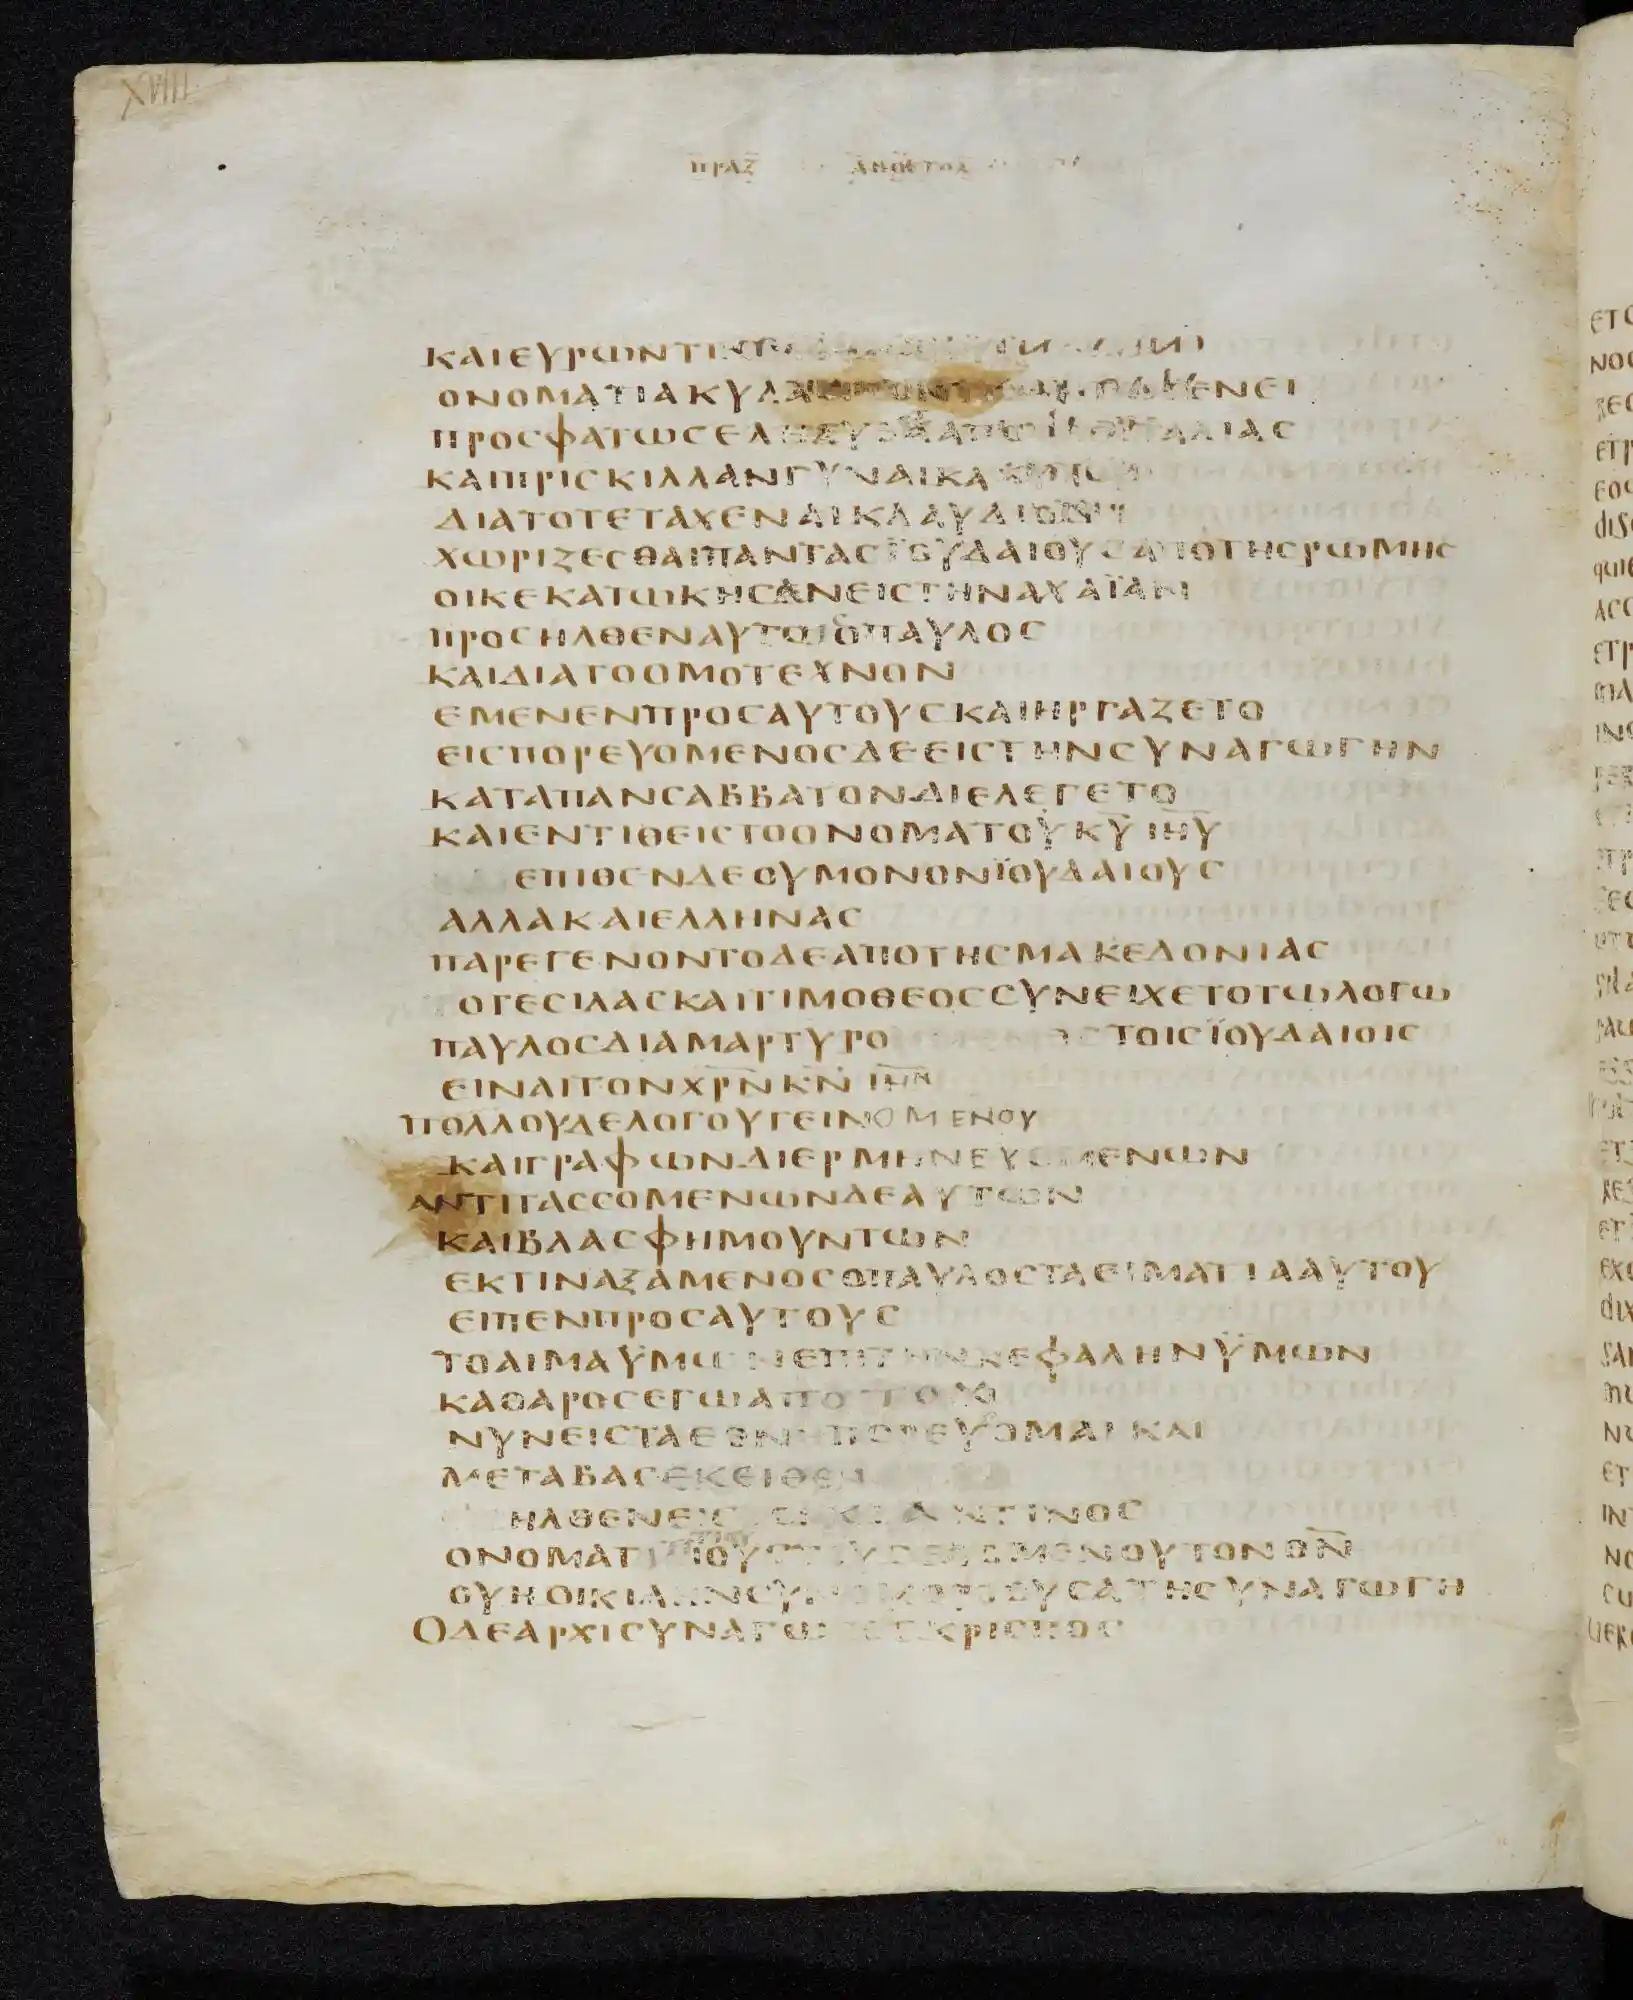 XVIII
ΠΡΑΞ ΑΠΟΣΤΟΛ
ΚΑΙΕΥΡΩΝΤΙΝΑ
ΟΝΟΜΑΤΙΑΚΥΛΑΝ ΓΕΝΕΙ
ΠΡΟΣΦΑΤΩΣΕΛΗΛΥΘΟΤΑΑΠΟΤΗΣΙΤΑΛΙΑΣ
ΚΑΙΠΡΙΣΚΙΛΛΑΝΓΥΝΑΙΚΑ
ΔΙΑΤΟΤΕΤΑΧΕΝΑΙΚΛΑΥΔΙΟΝ
ΧΩΡΙΖΕΣΘΑΙΠΑΝΤΑΣΪΟΥΔΑΙΟΥΣΑΠΟΤΗΣΡΩΜΗΣ
ΟΙΚΕΚΑΤΩΚΗΣΑΝΕΙΣΤΗΝΑΧΑΪΑΝ
ΠΡΟΣΗΛΘΕΝΑΥΤΩΙΟΠΑΥΛΟΣ
ΚΑΙΔΙΑΤΟΟΜΟΤΕΧΝΟΝ
ΕΜΕΝΕΝΠΡΟΣΑΥΤΟΥΣΚΑΙΗΡΓΑΖΕΤΟ
ΕΙΣΠΟΡΕΥΟΜΕΝΟΣΔΕΕΙΣΤΗΝΣΥΝΑΓΩΓΗΝ
ΚΑΤΑΠΑΝΣΑΒΒΑΤΟΝΔΙΕΛΕΓΕΤΟ
ΚΑΙΕΝΤΙΘΕΙΣΤΟΟΝΟΜΑΤΟΥΚ̅Υ̅ΙΗ̅Υ̅
ΕΠΙΘΕΝΔΕΟΥΜΟΝΟΝΪΟΥΔΑΙΟΥΣ
ΑΛΛΑΚΑΙΕΛΛΗΝΑΣ
ΠΑΡΕΓΕΝΟΝΤΟΔΕΑΠΟΤΗΣΜΑΚΕΔΟΝΙΑΣ
ΟΤΕΣΙΛΑΣΚΑΙΤΙΜΟΘΕΟΣΣΥΝΕΙΧΕΤΟΤΩΛΟΓΩ
ΠΑΥΛΟΣΔΙΑΜΑΡΤΥΡΟΜΕΝΟΣΤΟΙΣΪΟΥΔΑΙΟΙΣ
ΕΙΝΑΙΤΟΝΧΡ̅Ν̅Κ̅Ν̅ΙΗ̅Ν̅
ΠΟΛΛΟΥΔΕΛΟΓΟΥΓΕΙΝΟΜΕΝΟΥ
ΚΑΙΓΡΑΦΩΝΔΙΕΡΜΗΝΕΥΟΜΕΝΩΝ
ΑΝΤΙΤΑΣΣΟΜΕΝΩΝΔΕΑΥΤΩΝ
ΚΑΙΒΛΑΣΦΗΜΟΥΝΤΩΝ
ΕΚΤΙΝΑΞΑΜΕΝΟΣΟΠΑΥΛΟΣΤΑΕΙΜΑΤΙΑΑΥΤΟΥ
ΕΙΠΕΝΠΡΟΣΑΥΤΟΥΣ
ΤΟΑΙΜΑΫΜΩΝΕΠΙΤΗΝΚΕΦΑΛΗΝΫΜΩΝ
ΚΑΘΑΡΟΣΕΓΩΑΠΟ
ΝΥΝΕΙΣΤΑΕΘΝΗΠΟΡΕΥΟΜΑΙΚΑΙ
ΜΕΤΑΒΑΣΕΚΕΙΘΕΝ
ΗΛΘΕΝΕΙΣΟΙΚΟΝΤΙΝΟΣ
ΟΝΟΜΑΤΙΙΟΥΣΤΟΥΣΕΒΟΜΕΝΟΥΤΟΝΘ̅Ν̅
ΟΥΗΟΙΚΙΑΗΝΣΥΝΟΜΟΡΟΥΣΑΤΗΣΥΝΑΓΩΓΗ
ΟΔΕΑΡΧΙΣΥΝΑΓΩΓΟΣΚΡΙΣΠΟΣ